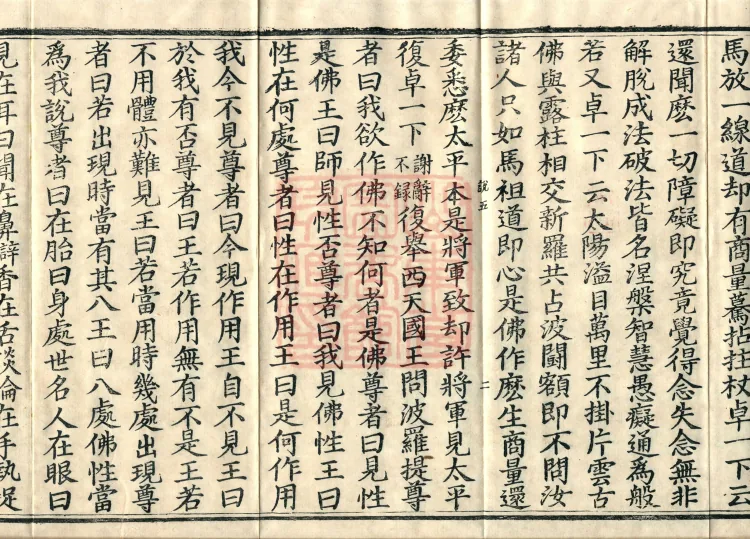 馬放一線道却有商量驀拈拄杖卓一下云
還聞麽一切障礙即究竟覺得念失念無非
解脫成法破法皆名涅槃智慧愚癡通為般
若又卓一下云太陽溢目萬里不掛片雲古
佛與露柱相交新羅共占波鬪額即不問汝
諸人只如馬祖道即心是佛作麽生商量還
說五 二
委悉麽太平本是將軍致却許將軍見太平
復卓一下謝辭不録復舉西天國王問波羅提尊
者曰我欲作佛不知何者是佛尊者曰見性
是佛王曰師見性否尊者曰我見佛性王曰
性在何處尊者曰性在作用王曰是何作用
我今不見尊者曰今現作用王自不見王曰
於我有否尊者曰王若作用無有不是王若
不用體亦難見王曰若當用時幾處出現尊
者曰若出現時當有其八王曰八處佛性當
為我說尊者曰在胎曰身處世名人在眼曰
見在耳曰聞在鼻辯香在舌談論在手執捉